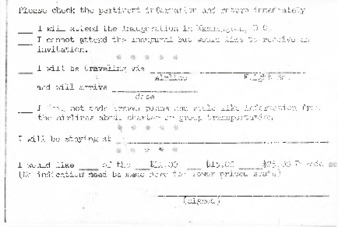 Please check the pertinent information and return immediately
I will attend the Inauguration in Washington, D.C.
I cannot attend the inaugural but would like to receive an
invitation.
I will be traveling via
Airline Flight no.
and will arrive
date
I have not made travel plans and would like information from
the airlines about charter or group transportation.
I will be staying at
I would like of the $15.00 $25.00
(No indication need be made here for lower priced seats)
(signed)